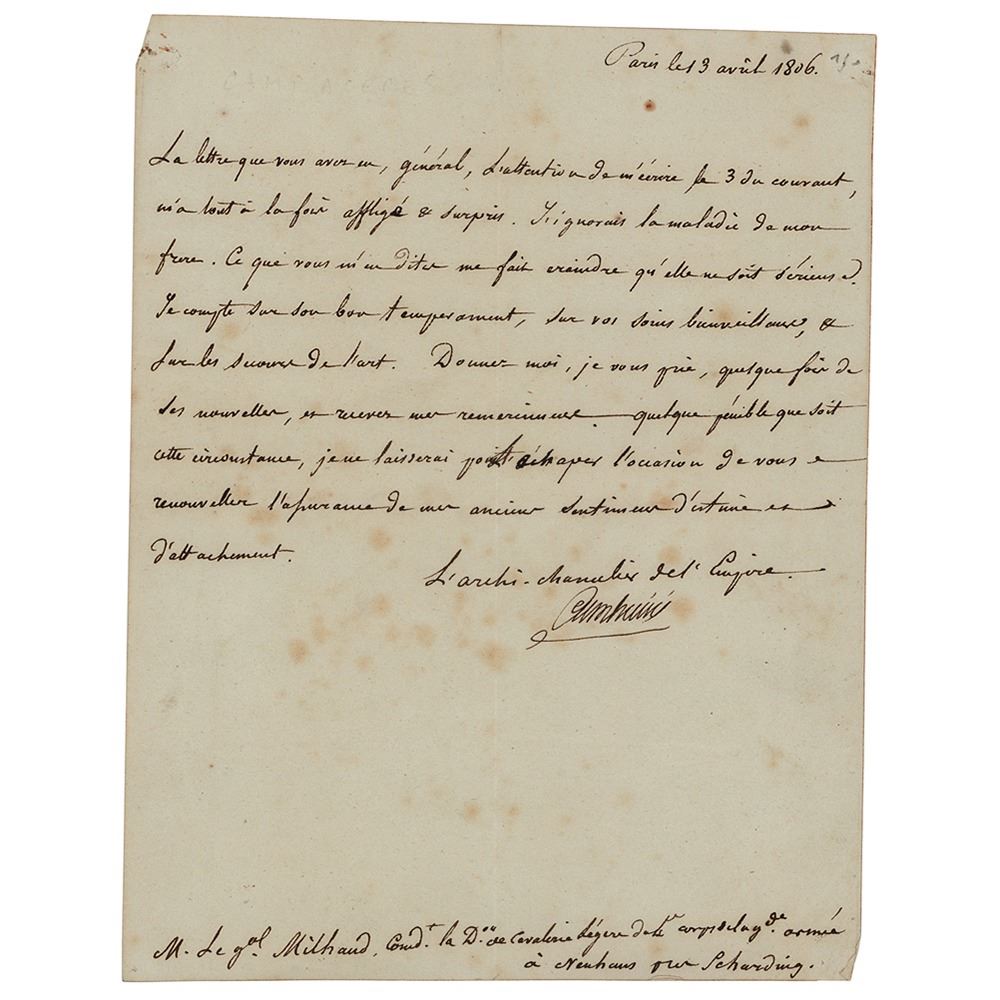 Paris le 13 avril 1806.
La lettre que vous avez eu, général, l'attention de m'écrire le 3 du courant,
m'a tout à la fois affligé & surpris. J'ignorais la maladie de mon
frere. Ce que vous m'en dites me fait craindre qu'elle ne soit sérieuse.
Je compte sur son bon temperament, sur vos soins bienveillans, &
sur les secours de l'art. Donnez moi, je vous prie, quelque fois de
ses nouvelles, et recevez mes remerciemens. quelque pénible que soit
cette circonstance, je ne laisserai point échaper l'occasion de vous
renouveller l'assurance de mes anciens sentimens d'estime et
d'attachement.
L'archi-chancelier de l'Empire.
Cambacérès
M. Le gal Milhaud, Comdt. la Don de Cavalerie Légere de corps de la gde. armée
à Neuhaus près Scharding.